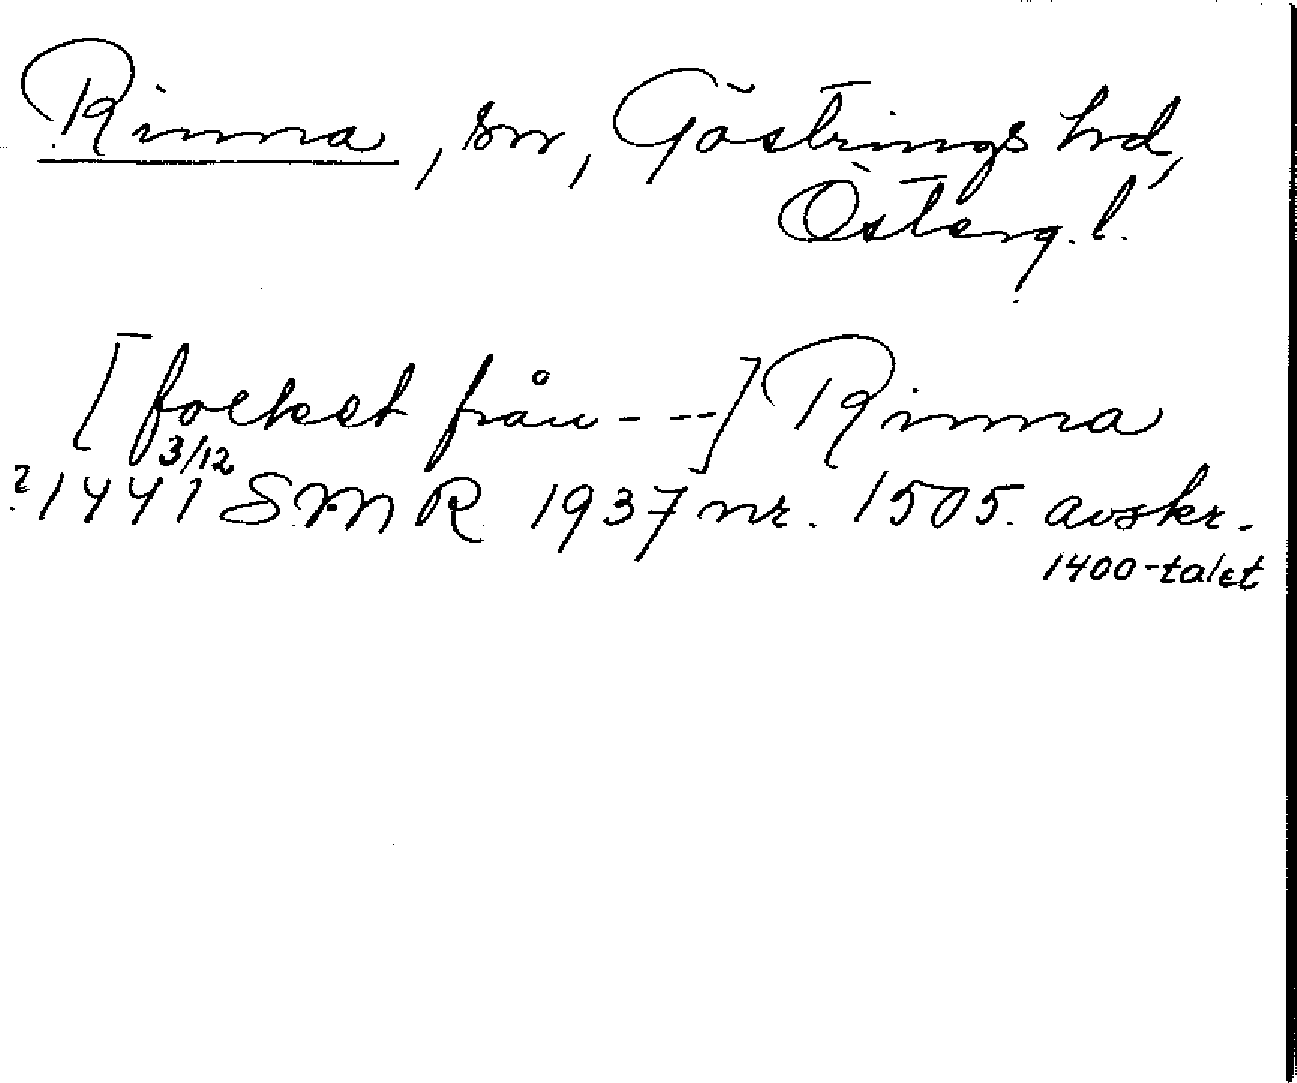 Rinna, sn, Göstrings hd,
Österg. l.
[folket från - - -] Rinna
3/12
? 1441 SMR 1937 nr. 1505. avskr.
1400-talet